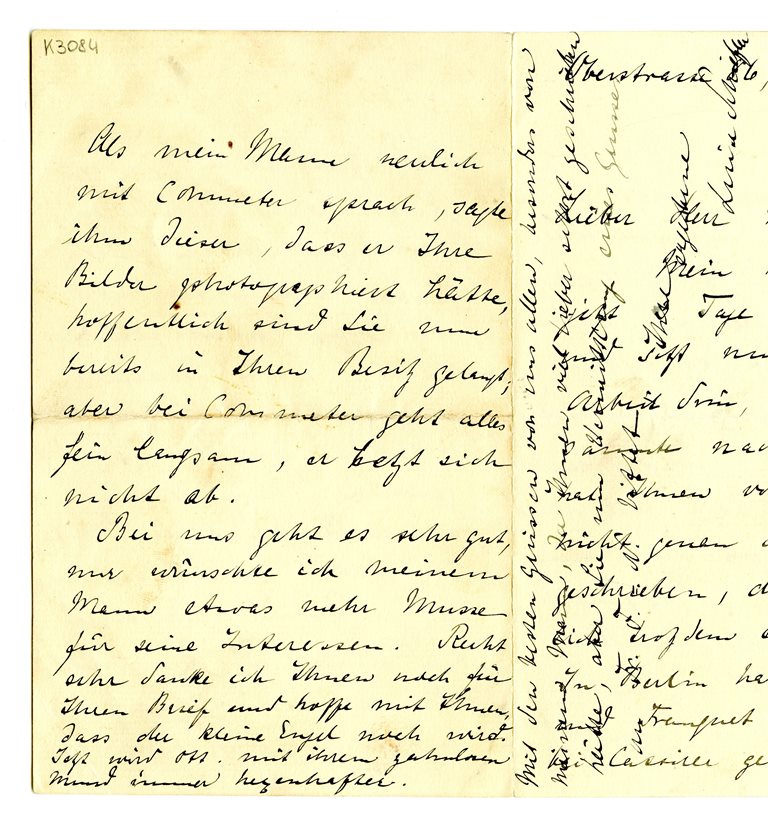 K3084
Als mein Mann neulich
mit Commeter sprach, sagte
ihm dieser, dass er Ihre
Bilder photographiert hätte,
hoffentlich sind Sie nun
bereits in Ihren Besitz gelangt,
aber bei Commeter geht alles
fein langsam, er hetzt sich
nicht ab.
Bei uns geht es sehr gut,
nur wünschte ich meinem
Mann etwas mehr Musse
für seine Interessen. Recht
sehr danke ich Ihnen noch für
Ihren Brief und hoffe mit Ihnen,
dass der kleine Engel noch wird
Jetzt wird Ott. mit ihrem zahnlosen
Mund immer hexenhafter.
Oberstrasse
Lieber Herr
Mein
Tage
Jetzt
Arbeit drin,
nac
hat Ihnen vo
nicht genau
geschrieben, d
trotzdem
In Berlin ha
Tranquet
Cassirer ge
Mit den besten Grüssen von uns allen, besonders von
meinem Mann, der Ihnen viel lieber selbst geschrieben
hätte, aber
Ihre ergebene